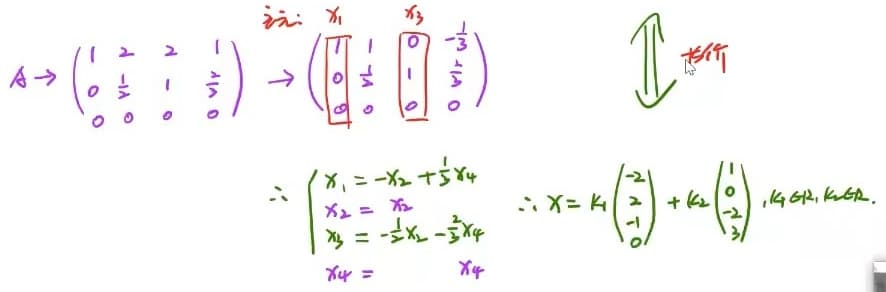 主元: x₁ x₃
A → (1 2 2 1; 0 1/2 1 2/3; 0 0 0 0) → (1 1 0 -1/3; 0 1/2 1 2/3; 0 0 0 0)
∴ { x₁ = -x₂ + 1/3 x₄
x₂ = x₂
x₃ = -1/2 x₂ - 2/3 x₄
x₄ = x₄
∴ x = k₁(-2; 2; -1; 0) + k₂(1; 0; -2; 3), k₁∈R, k₂∈R.